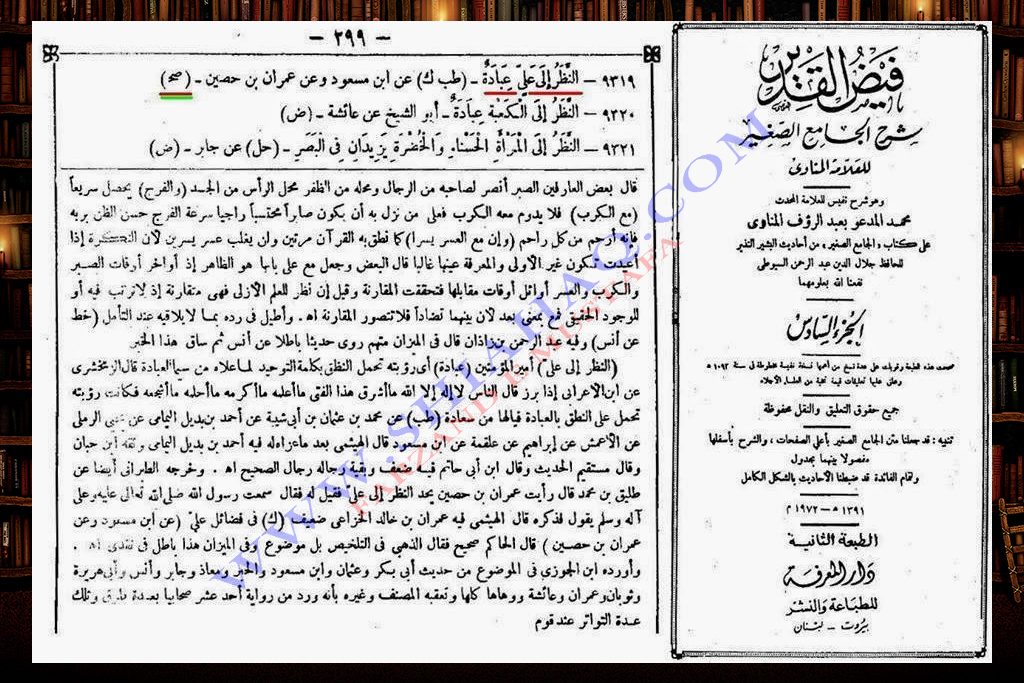 - ٢٩٩ -
٩٣١٩ - النَّظَرُ إِلَى عَلِيٍّ عِبَادَةٌ - (طب ك) عن ابن مسعود وعن عمران بن حصين - (صح)
٩٣٢٠ - النَّظَرُ إِلَى الْكَعْبَةِ عِبَادَةٌ - أبو الشيخ عن عائشة - (ض)
٩٣٢١ - النَّظَرُ إِلَى الْمَرْأَةِ الْحَسْنَاءِ وَالْخُضْرَةِ يَزِيدَانِ فِي الْبَصَرِ - (حل) عن جابر - (ض)
قال بعض العارفين الصبر أنصر لصاحبه من الرجال ومحله من الظفر محل الرأس من الجسد (والفرج) يحصل سريعاً
(مع الكرب) فلا يدوم معه الكرب فعلى من نزل به أن يكون صابراً محتسباً راجيا سرعة الفرج حسن الظن بربه
فإنه أرحم من كل راحم (وإن مع العسر يسرا) كما نطق به القرآن مرتين ولن يغلب عسر يسرين لأن النكرة إذا
أعيدت تكون غير الأولى والمعرفة عينها غالبا قال البعض وجعل مع على بابها هو الظاهر إذ أواخر أوقات الصبر
والكرب والعسر أوائل أوقات مقابلها فتحققت المقارنة وقيل إن نظر للعلم الأزلى فهى متقارنة إذ لا ترتب فيه أو
للوجود الحقيقى فمع بمعنى بعد لأن بينهما تضاداً فلا تتصور المقارنة اه . وأطيل فى رده بما لا يلاقيه عند التأمل (خط
عن أنس) وفيه عبد الرحمن بن زاذان قال فى الميزان متهم روى حديثا باطلا عن أنس ثم ساق هذا الخبر
(النظر إلى علىّ) أمير المؤمنين (عبادة) أى رؤيته تحمل النطق بكلمة التوحيد لما علاه من سيما العبادة قال الزمخشرى
عن ابن الاعرابى إذا برز قال الناس لا إله إلا الله ما أشرق هذا الفتى ما أعلمه ما أكرمه ما أحلمه ما أشجعه فكانت رؤيته
تحمل على النطق بالعبادة فيالها من سعادة (طب) عن محمد بن عثمان بن أبى شيبة عن أحمد بن بديل اليامى عن يحيى الرملى
عن الأعمش عن إبراهيم عن علقمة عن ابن مسعود قال الهيثمى بعد ما عزاه له فيه أحمد بن بديل اليامى وثقه ابن حبان
وقال مستقيم الحديث وقال ابن أبى حاتم فيه ضعف وبقية رجاله رجال الصحيح اه . وخرجه الطبرانى أيضا عن
طليق بن محمد قال رأيت عمران بن حصين يحد النظر إلى علىّ فقيل له فقال سمعت رسول الله صلى الله تعالى عليه وعلى
آله وسلم يقول فذكره قال الهيثمى فيه عمران بن خالد الخزاعى ضعيف (ك) فى فضائل علىّ (عن ابن مسعود وعن
عمران بن حصين) قال الحاكم صحيح فقال الذهبى فى التلخيص بل موضوع وفى الميزان هذا باطل فى نقدى اه .
وأورده ابن الجوزى فى الموضوع من حديث أبى بكر وعثمان وابن مسعود والحبر ومعاذ وجابر وأنس وأبى هريرة
وثوبان وعمران وعائشة ووهاها كلها وتعقبه المصنف وغيره بأنه ورد من رواية أحد عشر صحابيا بعدة طرق وتلك
عدة التواتر عند قوم
فيض القدير
شرح الجامع الصغير
للعلامة المناوى
وهو شرح نفيس للعلامة المحدث
محمد المدعو بعبد الرؤف المناوى
على كتاب «الجامع الصغير» من أحاديث البشير النذير
للحافظ جلال الدين عبد الرحمن السيوطى
نفعنا الله بعلومهما
الجزء السادس
صححت هذه الطبعة وقوبلت على عدة نسخ من أهمها نسخة نفيسة مخطوطة فى سنة ١٠٩٣ هـ
وعلق عليها تعليقات قيمة نخبة من العلماء الأجلاء
جميع حقوق التعليق والنقل محفوظة
تنبيه : قد جعلنا متن الجامع الصغير بأعلى الصفحات ، والشرح بأسفلها
مفصولا بينهما بجدول
ولتمام الفائدة قد ضبطنا الأحاديث بالشكل الكامل
١٣٩١ هـ - ١٩٧٢ م
الطبعة الثانية
دار المعرفة
للطباعة والنشر
بيروت - لبنان
WWW.SHIAHAQ.COM
FARZAND E MUSTAFA